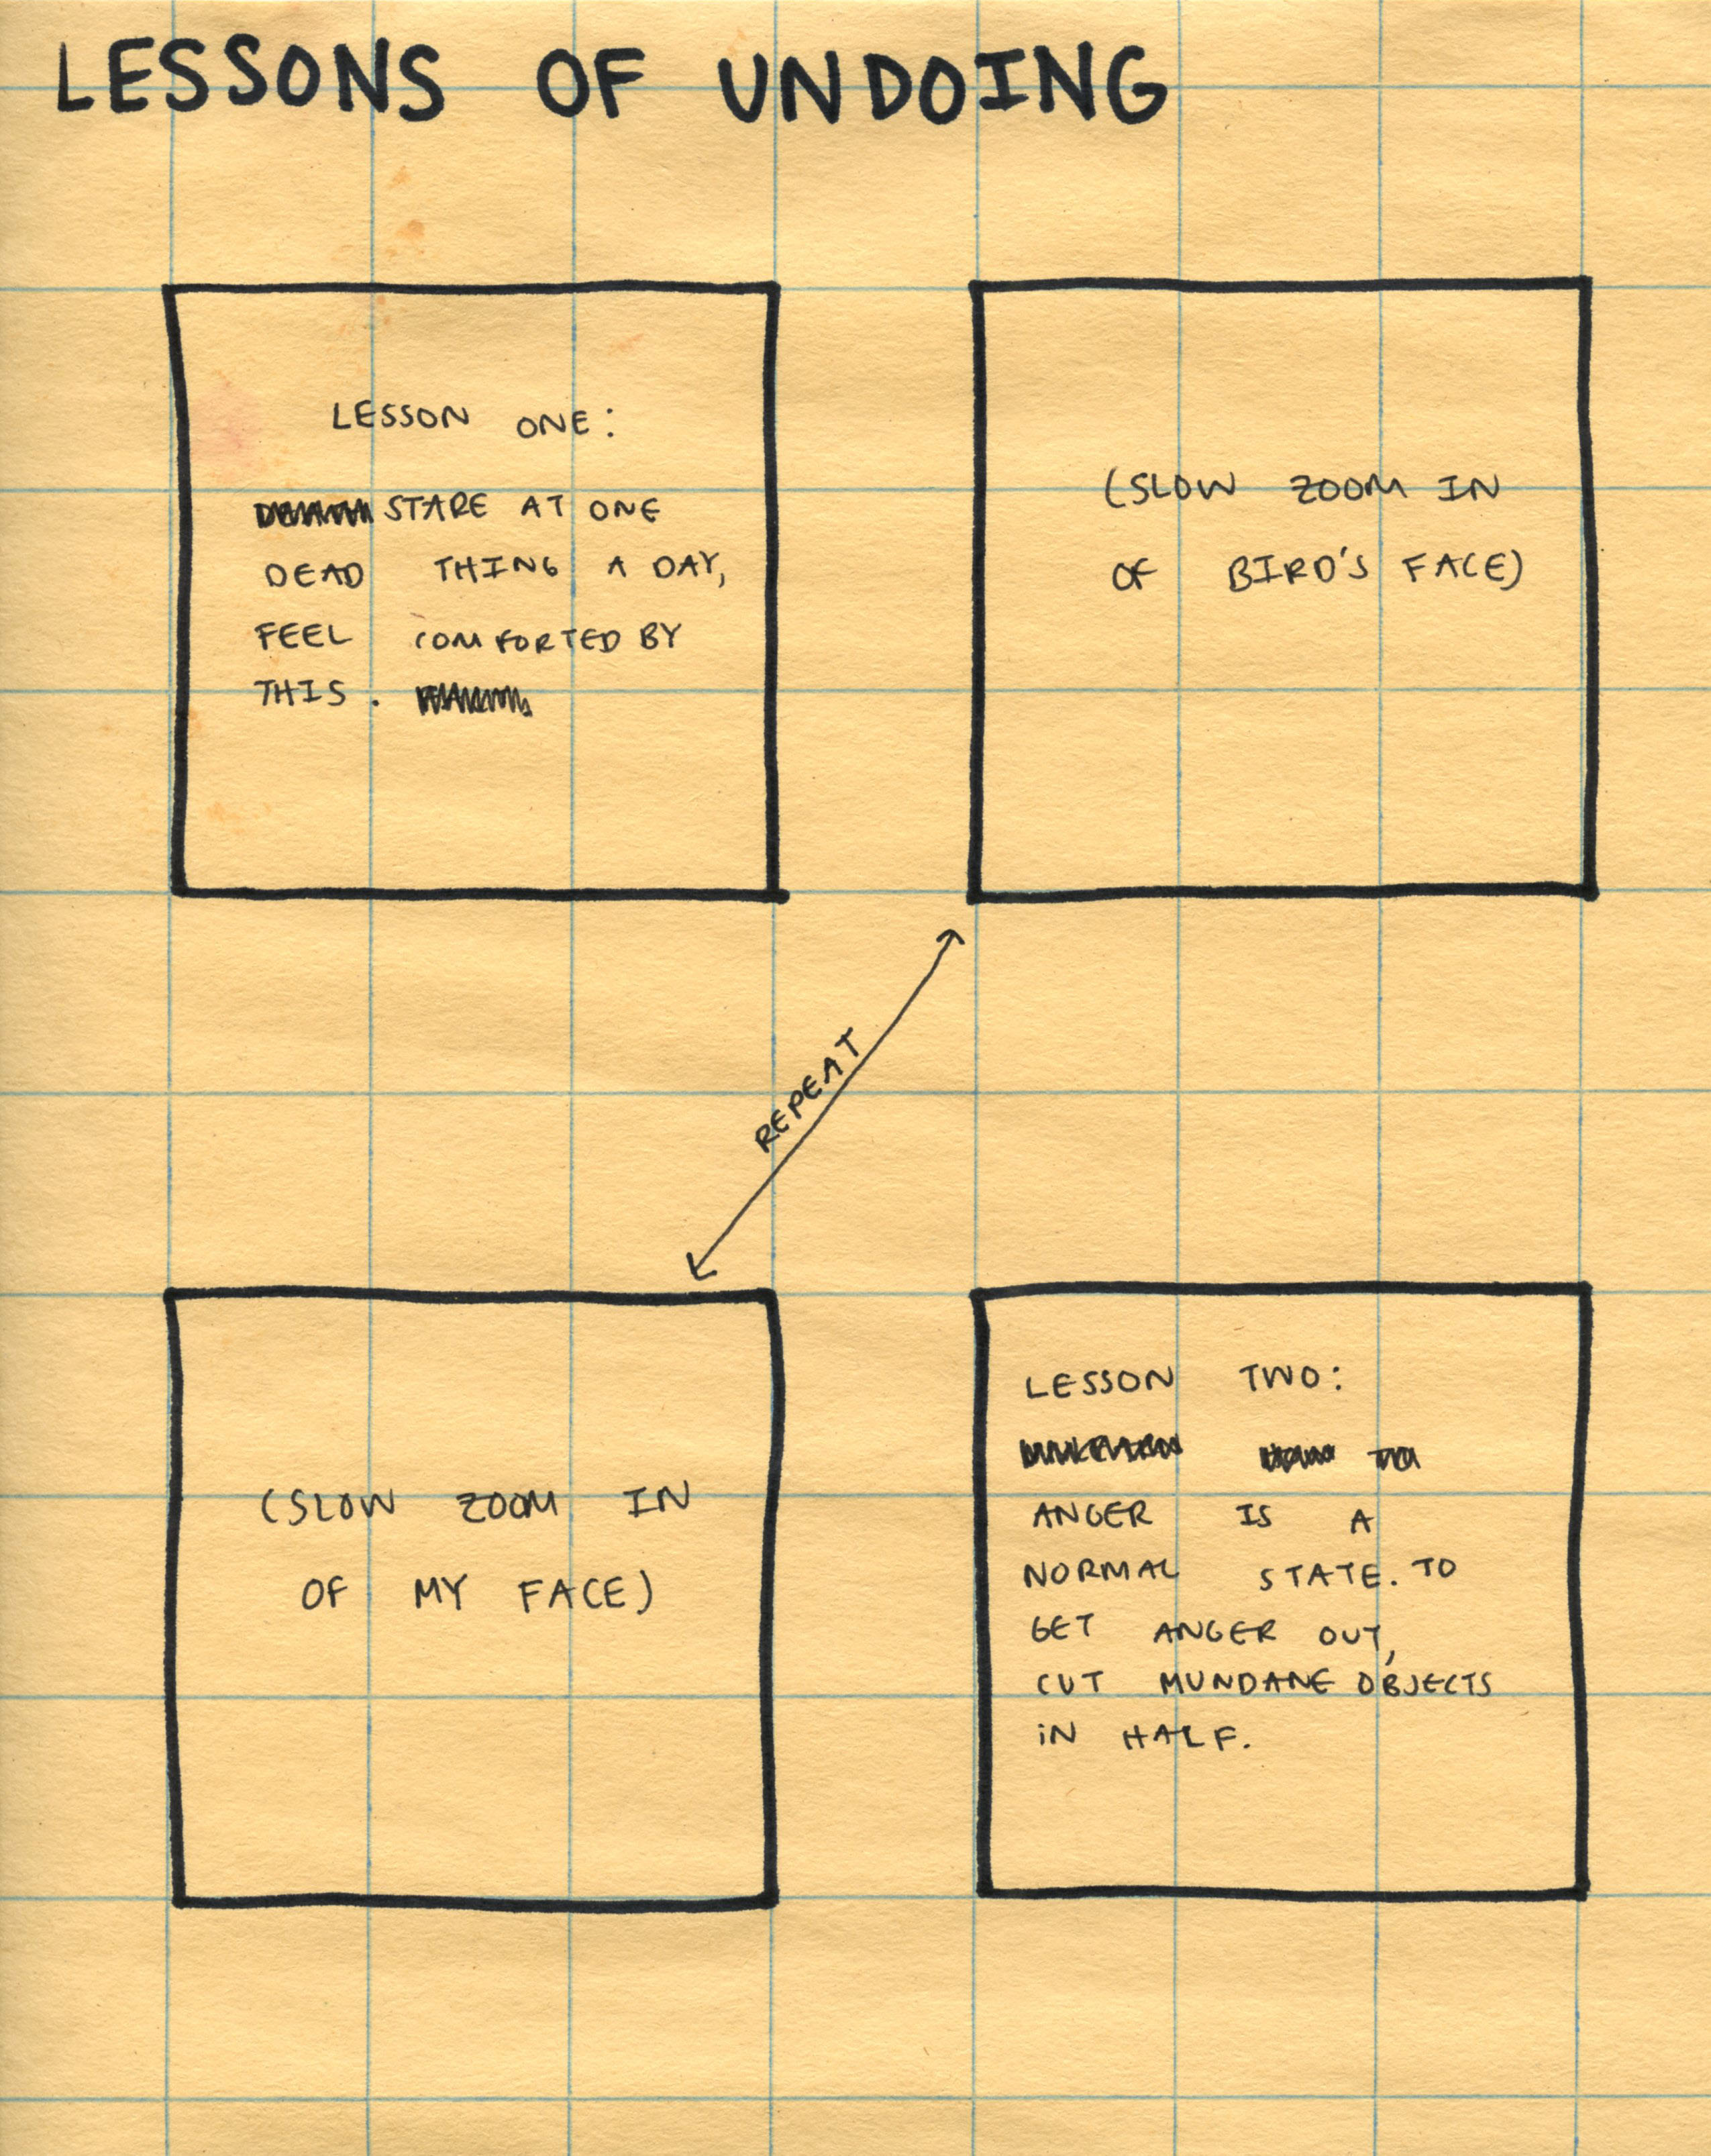 LESSONS OF UNDOING
LESSON ONE:
STARE AT ONE
DEAD THING A DAY,
FEEL COMFORTED BY
THIS.
(SLOW ZOOM IN
OF BIRD'S FACE)
REPEAT
(SLOW ZOOM IN
OF MY FACE)
LESSON TWO:
ANGER IS A
NORMAL STATE. TO
GET ANGER OUT,
CUT MUNDANE OBJECTS
IN HALF.